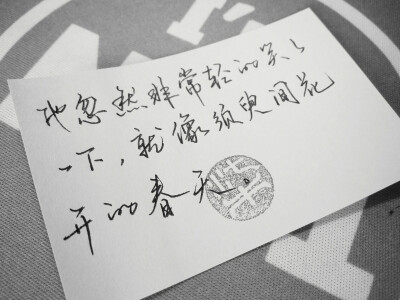 他忽然非常轻的笑了
一下，就像须臾间花
开的春天。